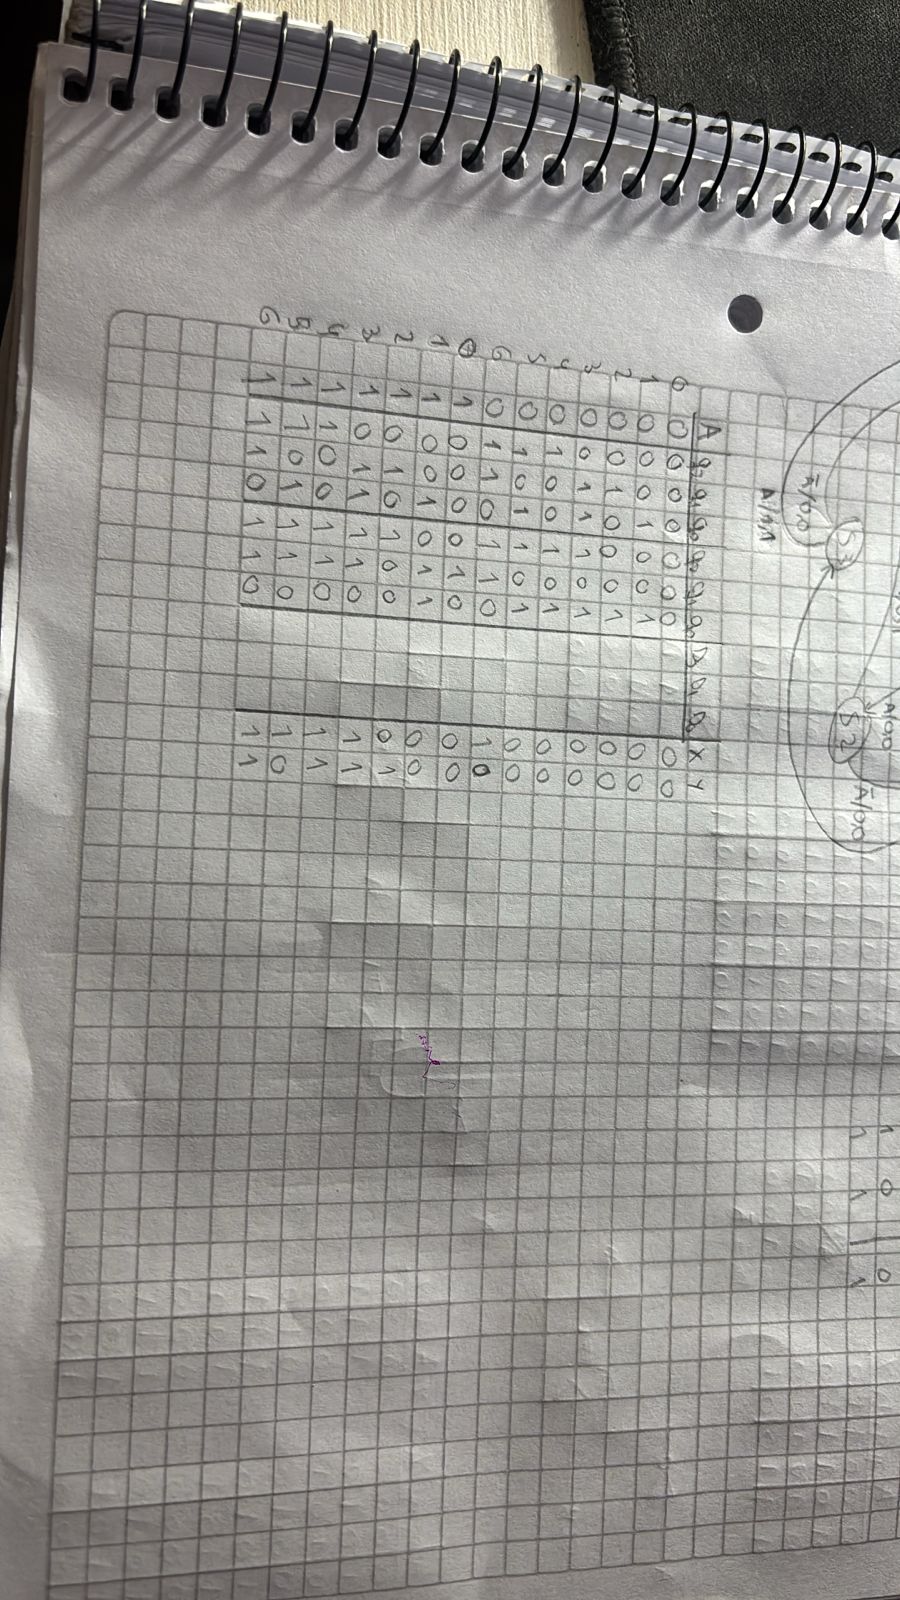 A/0,0
1 0 0
S2
Ā/0,0
1 1 1
S3
Ā/0,0
A/1,1
A q2 q1 q0 q2 q1 q0 D2 D1 D0 X Y
0 0 0 0 0 0 0 0 0 0
1 0 0 0 1 0 0 1 0 0
2 0 0 1 0 0 0 1 0 0
3 0 0 1 1 1 0 1 0 0
4 0 1 0 0 1 0 1 0 0
5 0 1 0 1 1 0 1 0 0
6 0 1 1 0 1 1 0 1 0
0 1 0 0 0 0 1 0 0 0
1 1 0 0 1 0 1 1 0 0
2 1 0 1 0 1 0 0 0 1
3 1 0 1 1 1 1 0 1 1
4 1 1 0 0 1 1 0 1 1
5 1 1 0 1 1 1 0 1 0
6 1 1 1 0 1 1 0 1 1